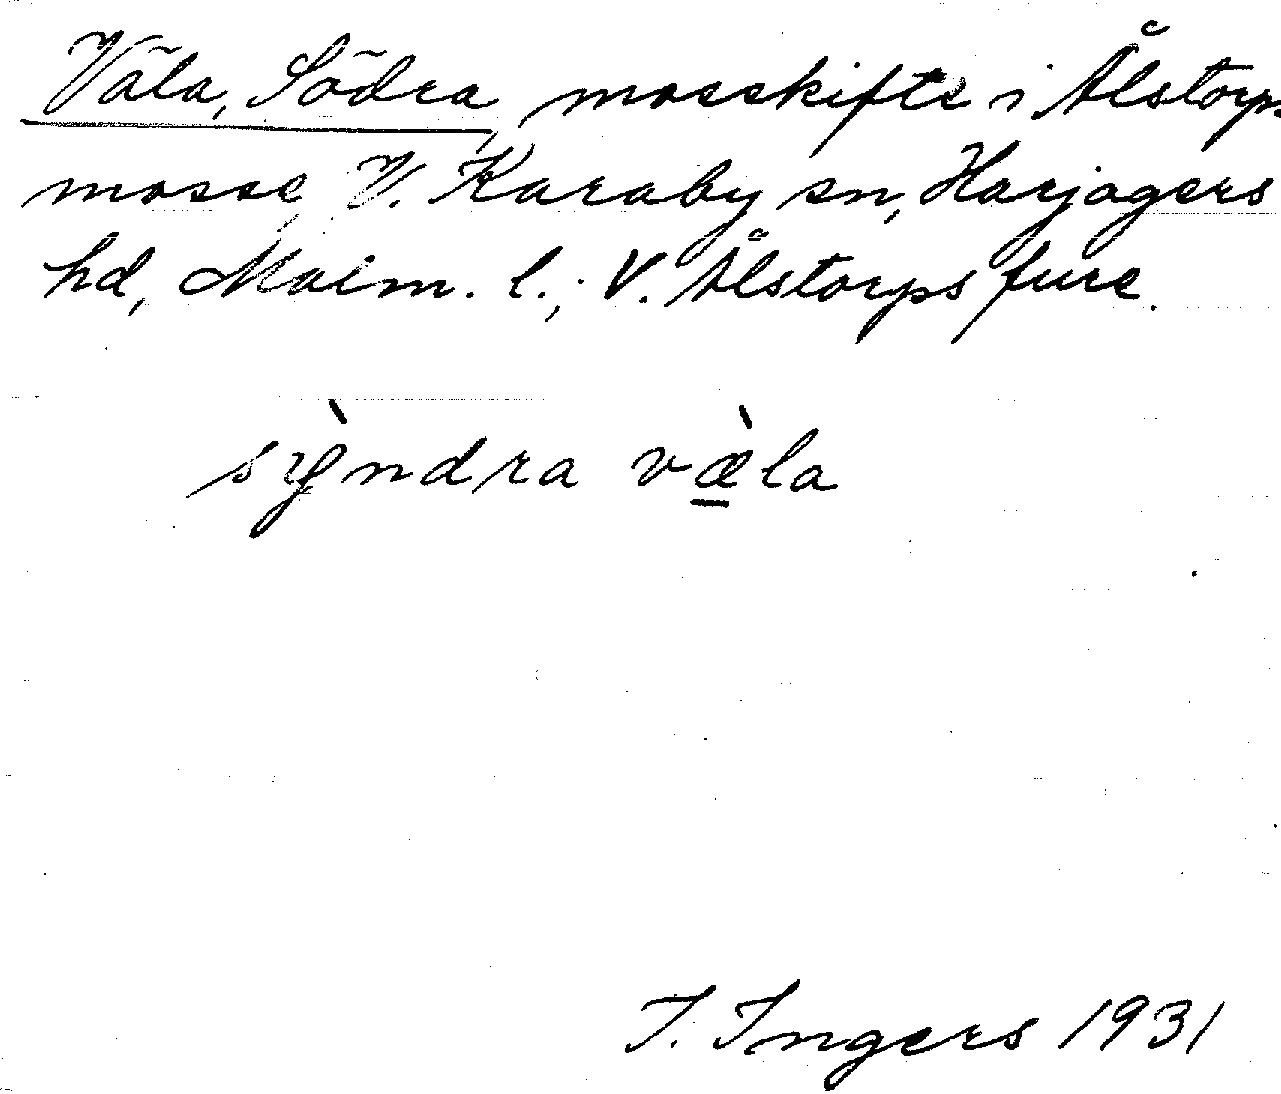 Väla, Södra, mosskifte i Ålstorps
mosse, V. Karaby sn, Harjagers
hd, Malm. l.; V. Ålstorps fure.
sỳndra væ̠̀la
I. Ingers 1931